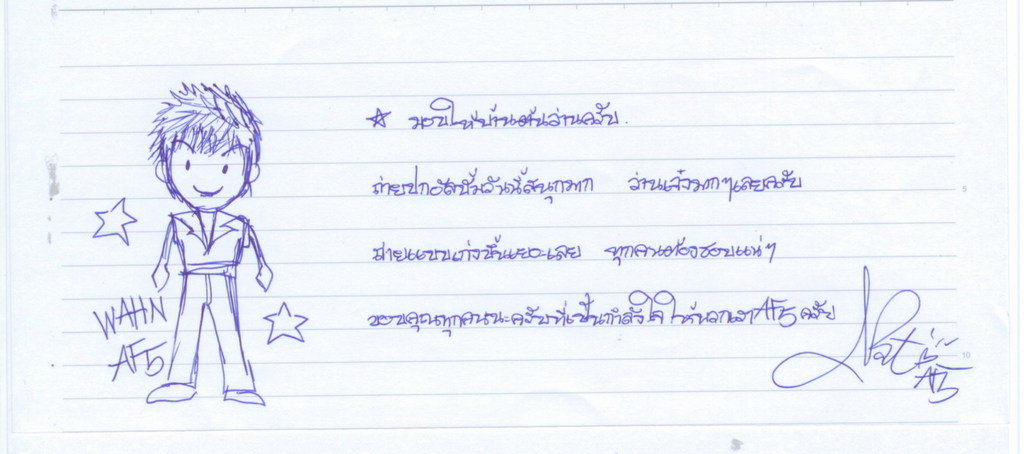 ☆ มอบให้บ้านต้นว่านครับ.
ถ่ายปกอัลบั้มวันนี้สนุกมาก ว่านเจ๋งมากๆเลยครับ
ถ่ายแบบเก่งขึ้นเยอะเลย ทุกคนต้องชอบแน่ๆ
ขอบคุณทุกคนนะครับที่เป็นกำลังใจให้พวกเรา AF5 ครับ
WAHN
AF5
Nat
AF5